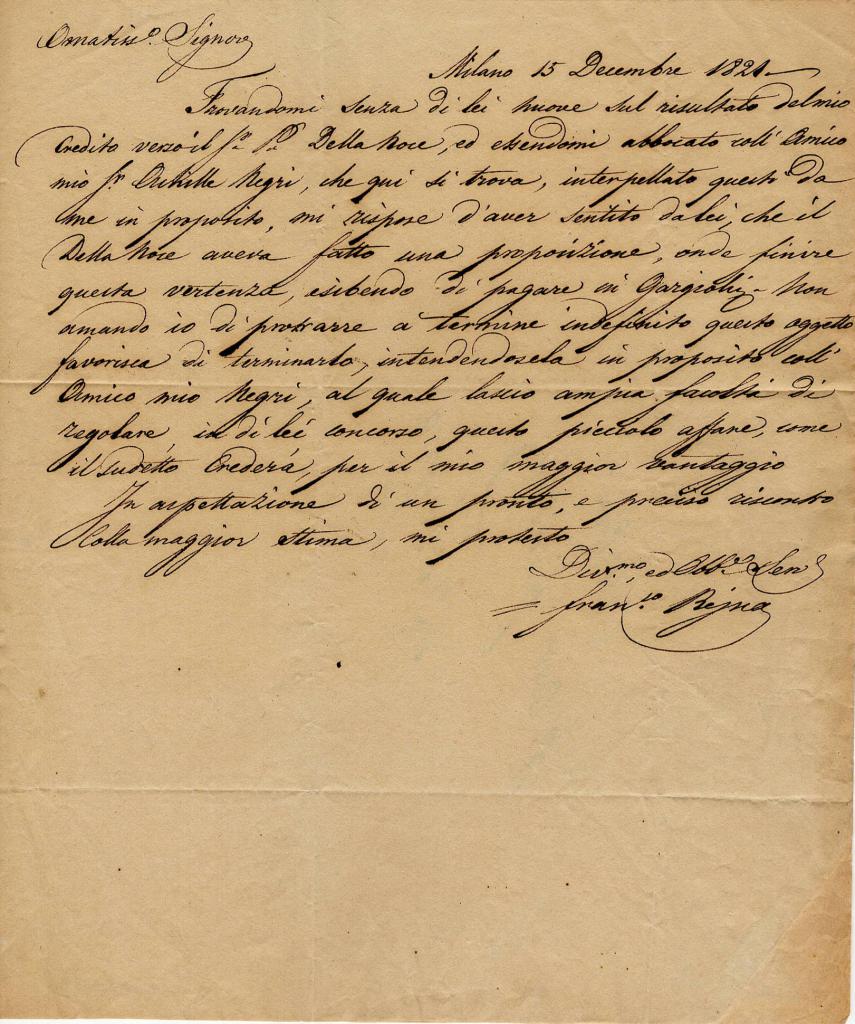 Ornatiss.o Signore
Milano 15 Decembre 1821
Trovandomi senza di lei nuove sul risultato del mio
Credito verso il S.r Della Noce, ed essendomi abbocato coll' Amico
mio S.r Achille Negri, che qui si trova, interpellato questi da
me in proposito, mi rispose d'aver sentito da lei, che il
Della Noce aveva fatto una proposizione, onde finire
questa vertenza, esibendo di pagare in Non
amando io di protrarre a termine indefinito questo oggetto
favorisca di terminarlo, intendendosela in proposito coll'
Amico mio Negri, al quale lascio ampia facoltà di
regolare, in di lei concorso, questo picciolo affare, come
il sudetto Crederà, per il mio maggior vantaggio
In aspettazione di un pronto, e preciso riscontro
Colla maggior stima, mi protesto
Div.mo, ed Obb.o Ser.
Fran.co Rejna